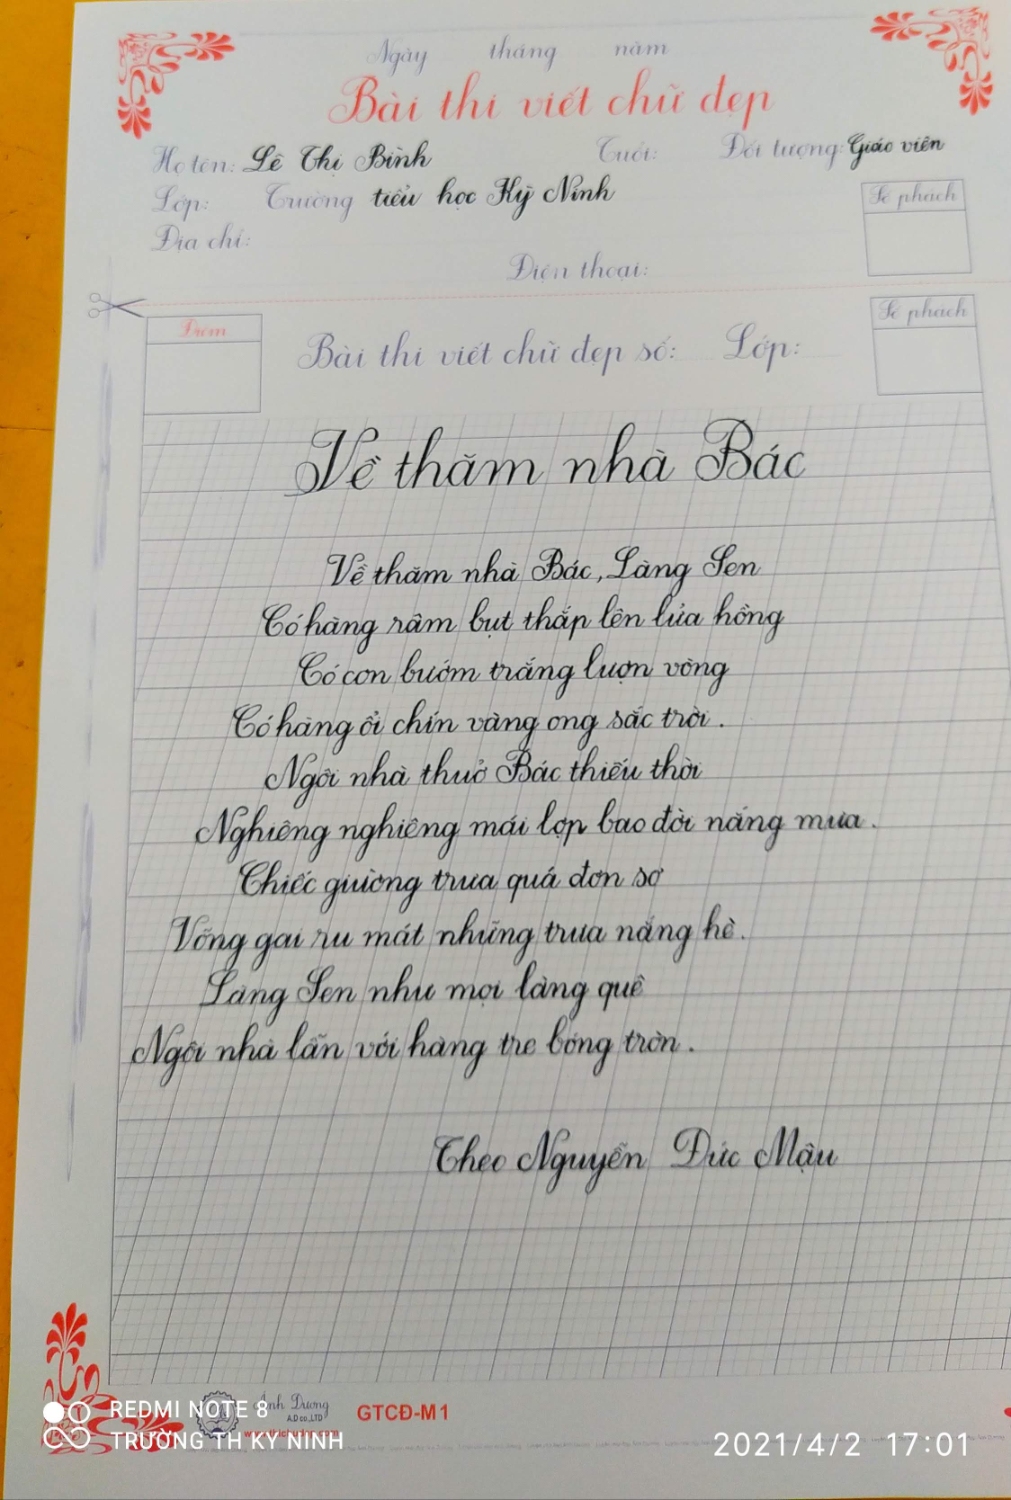 Ngày tháng năm
Bài thi viết chữ đẹp
Họ tên: Lê Thị Bình Tuổi: Đối tượng: Giáo viên
Lớp: Trường tiểu học Kỳ Ninh
Số phách
Địa chỉ:
Điện thoại:
Điểm
Số phách
Bài thi viết chữ đẹp số: Lớp:
Về thăm nhà Bác
Về thăm nhà Bác, Làng Sen
Có hàng râm bụt thắp lên lửa hồng
Có con bướm trắng lượn vòng
Có hàng ổi chín vàng ong sắc trời.
Ngôi nhà thuở Bác thiếu thời
Nghiêng nghiêng mái lợp bao đời nắng mưa.
Chiếc giường trưa quá đơn sơ
Võng gai ru mát những trưa nắng hè.
Làng Sen như mọi làng quê
Ngôi nhà lẫn với hàng tre bóng tròn.
Theo Nguyễn Đức Mậu
Ánh Dương
A.D co.,LTD
GTCĐ-M1
REDMI NOTE 8
TRƯỜNG TH KỲ NINH
2021/4/2 17:01